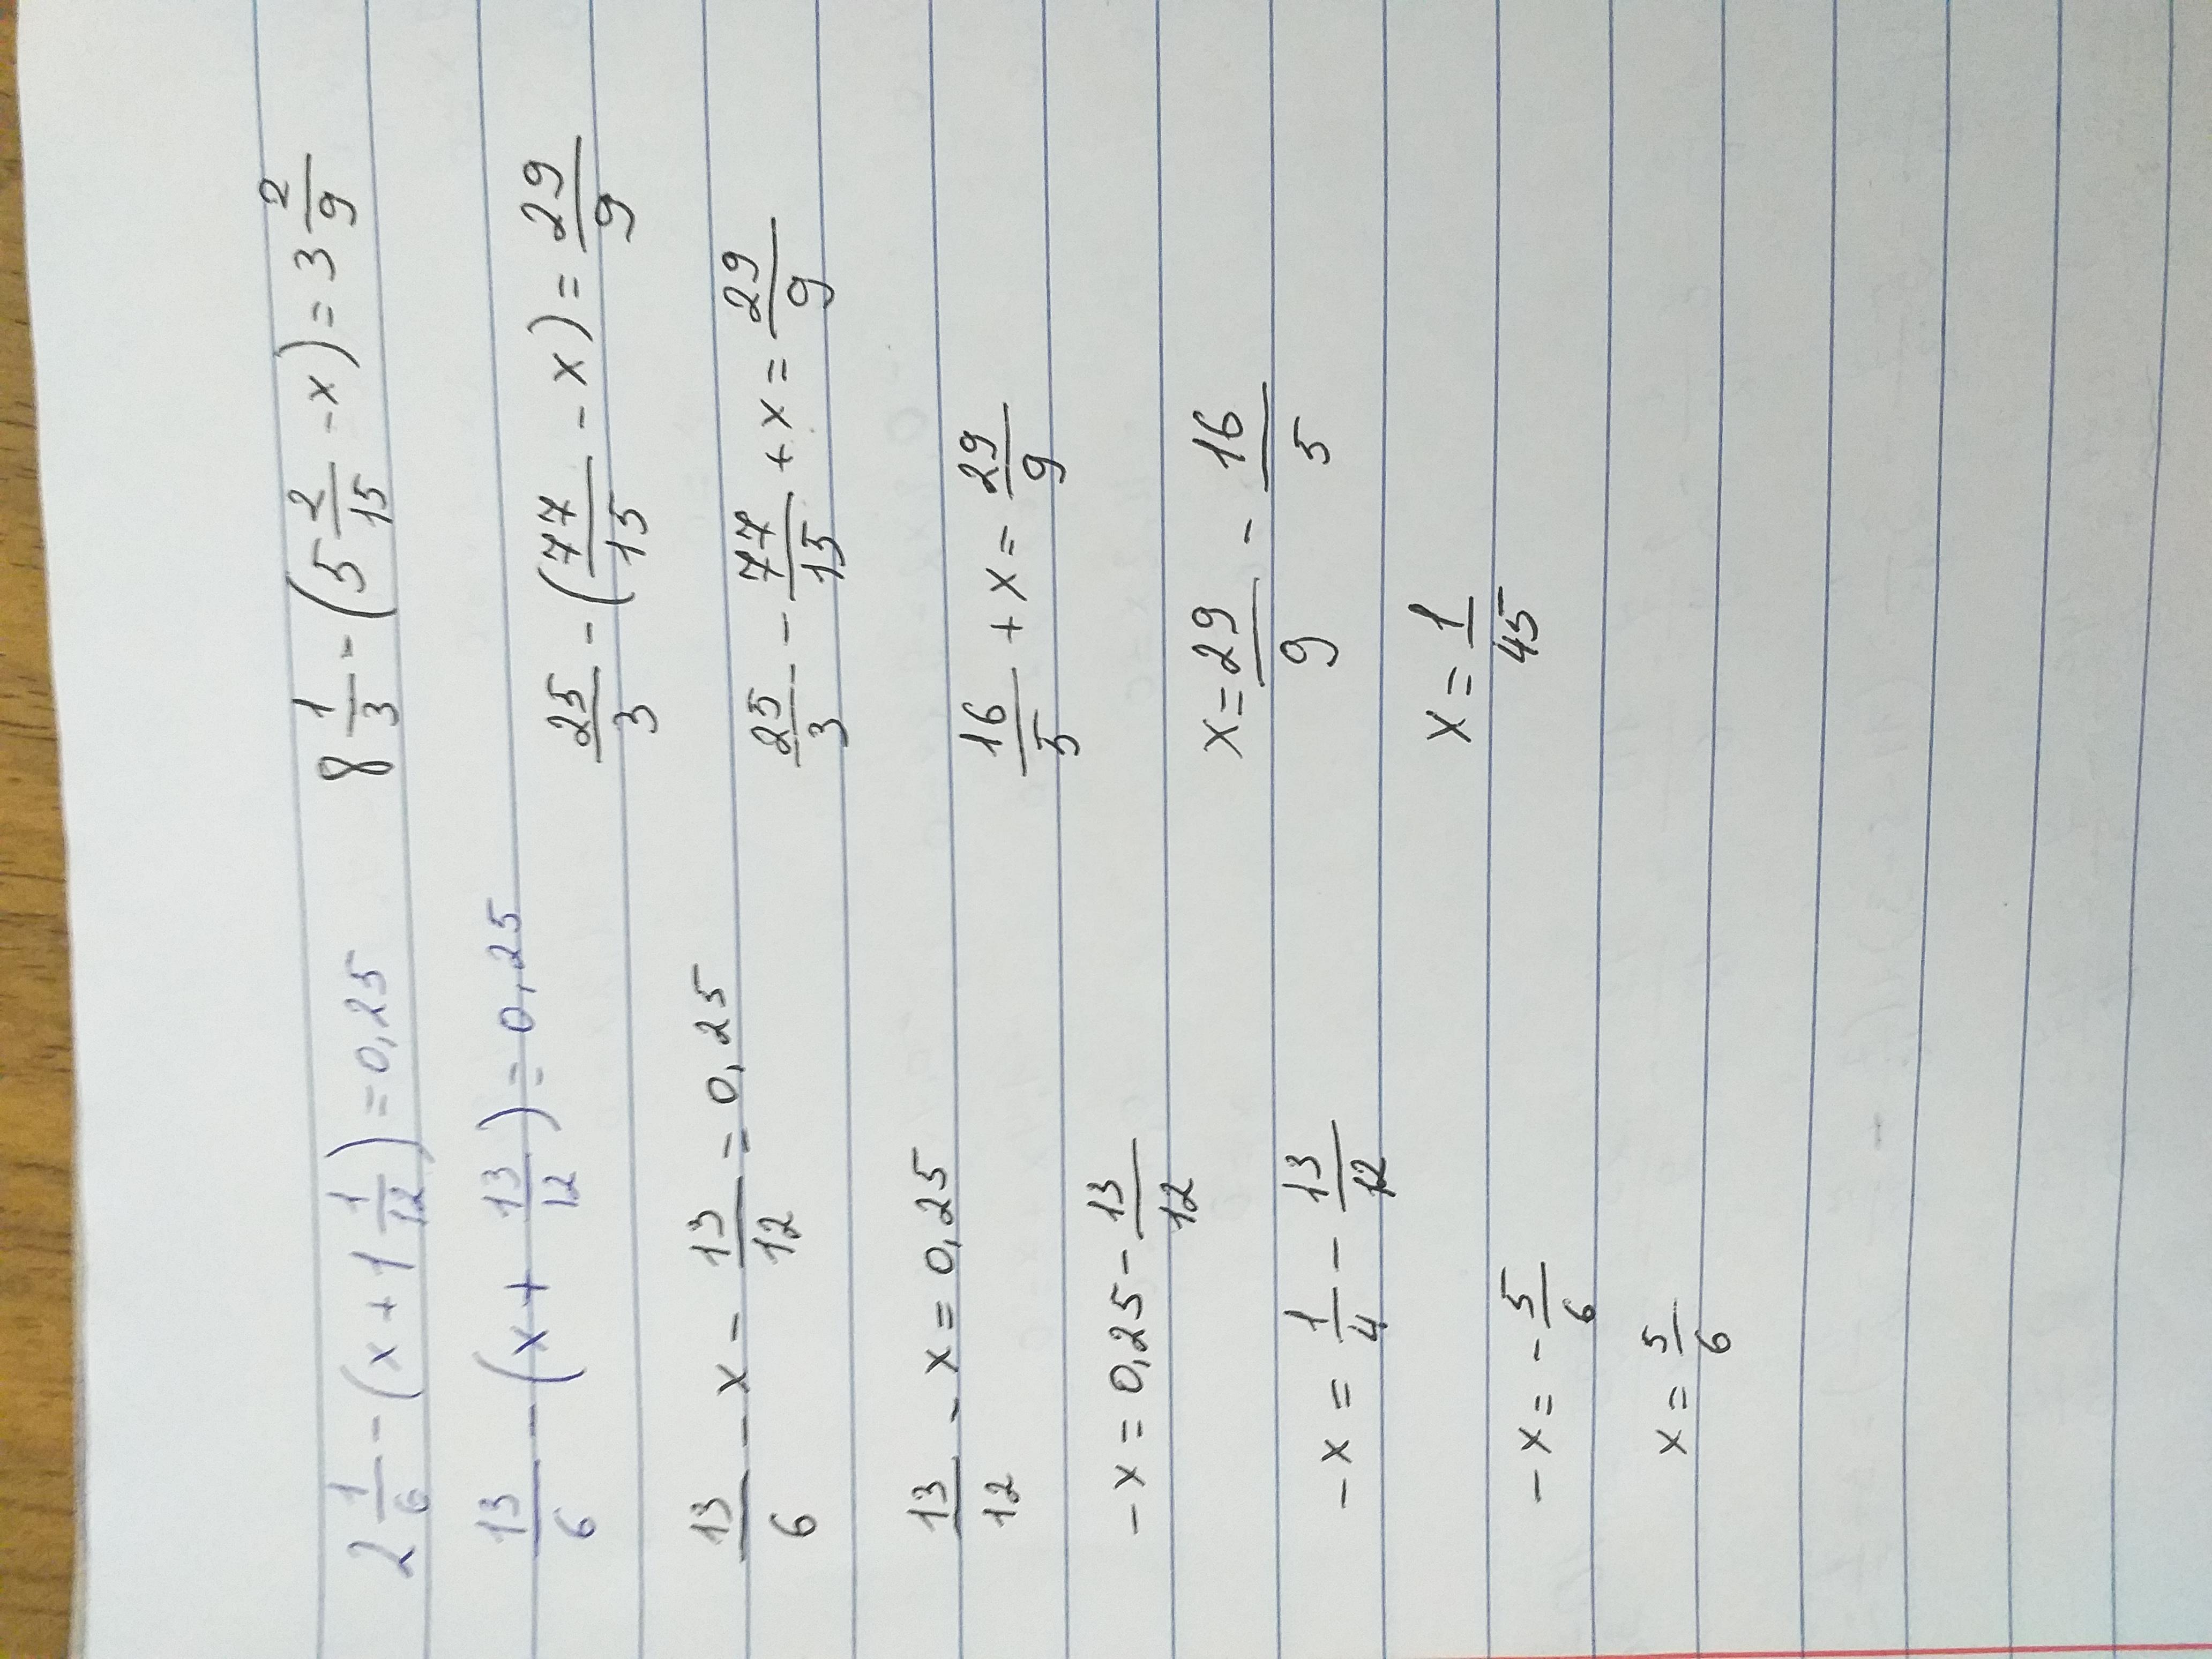 2 1/6 - (x + 1 1/12) = 0,25
13/6 - (x + 13/12) = 0,25
13/6 - x - 13/12 = 0,25
13/12 - x = 0,25
-x = 0,25 - 13/12
-x = 1/4 - 13/12
-x = - 5/6
x = 5/6
8 1/3 - (5 2/15 - x) = 3 2/9
25/3 - (77/15 - x) = 29/9
25/3 - 77/15 + x = 29/9
16/5 + x = 29/9
x = 29/9 - 16/5
x = 1/45